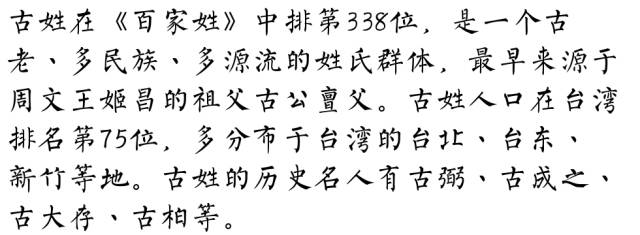 古姓在《百家姓》中排第338位，是一个古
老、多民族、多源流的姓氏群体，最早来源于
周文王姬昌的祖父古公亶父。古姓人口在台湾
排名第75位，多分布于台湾的台北、台东、
新竹等地。古姓的历史名人有古弼、古成之、
古大存、古柏等。